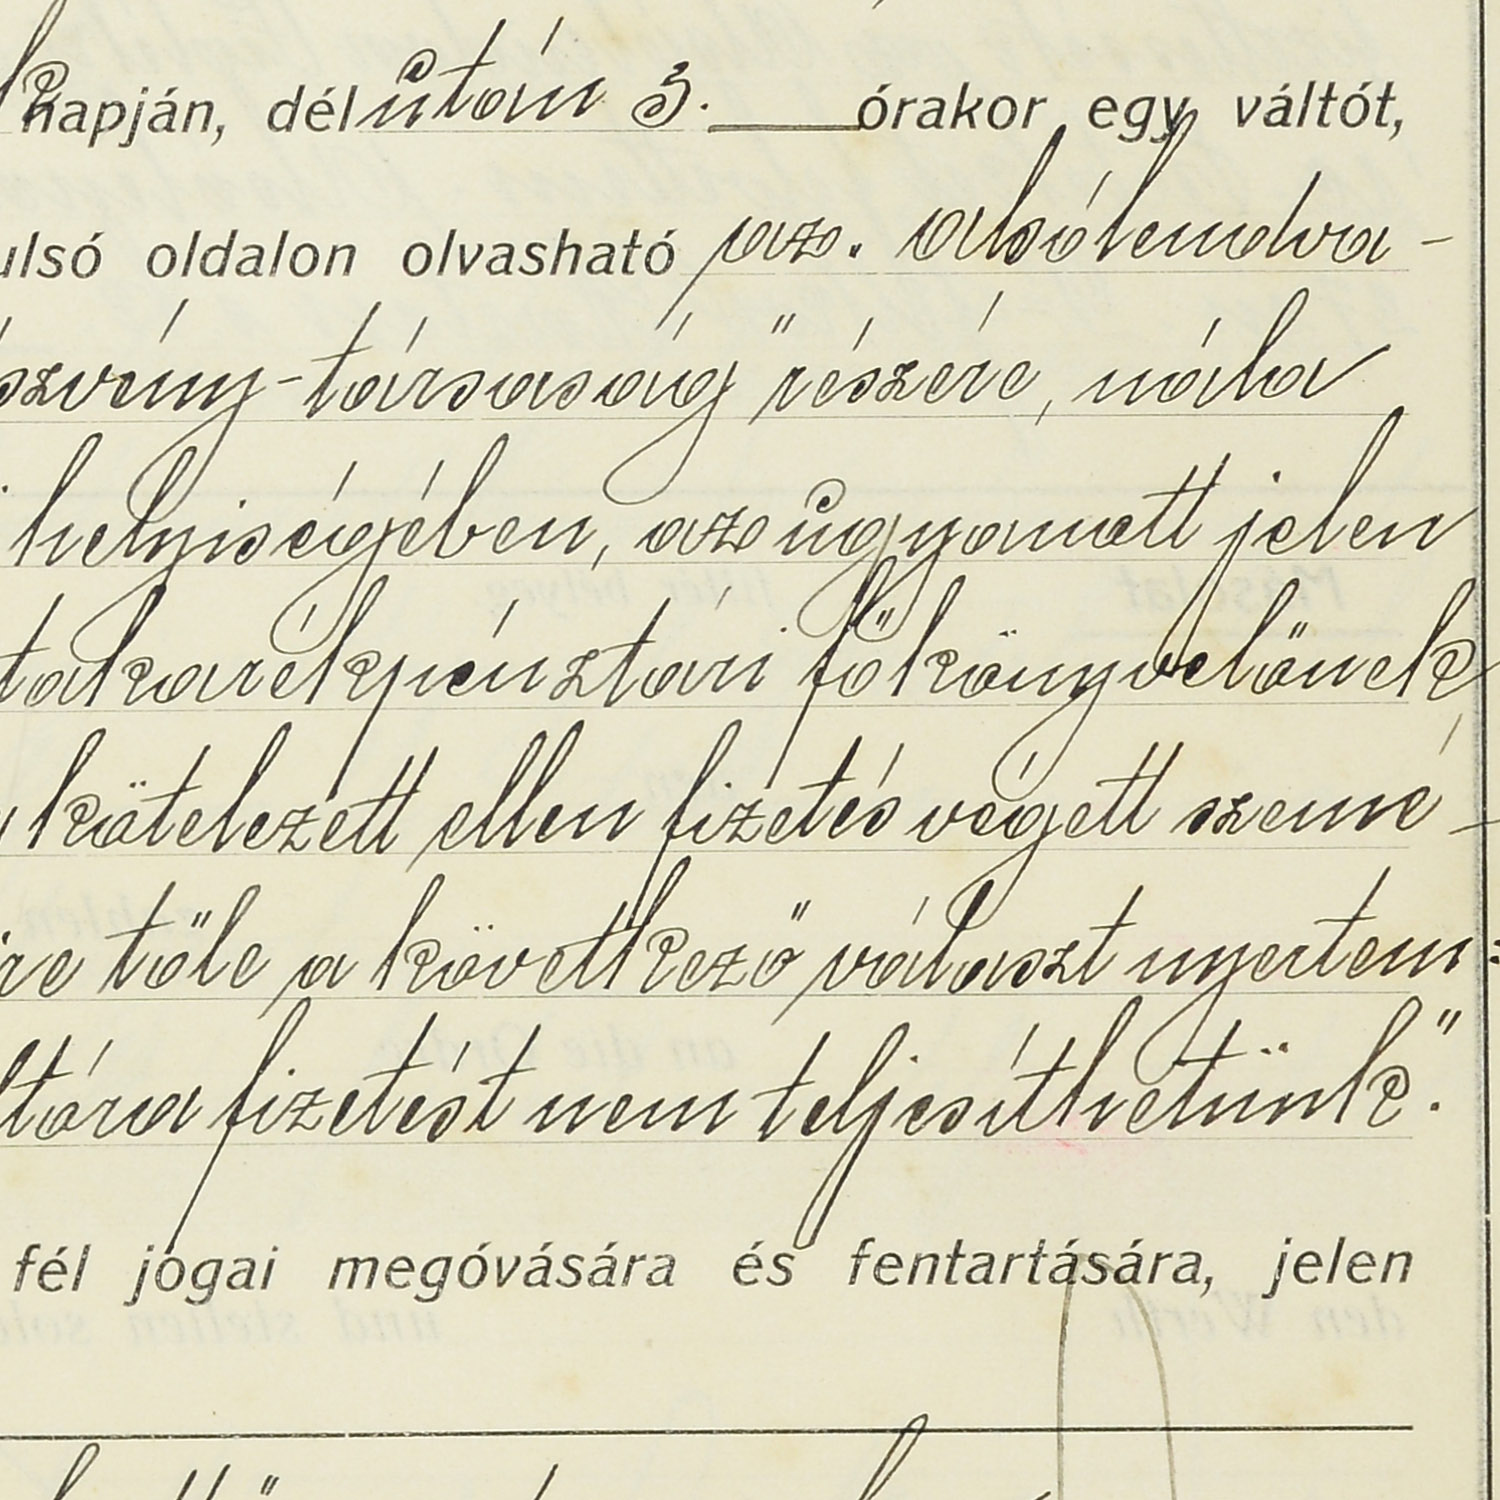 napján, délután 3. órakor egy váltót,
ulsó oldalon olvasható „az. alsólendva-
szvény-társaság" részére, nála
helyiségében, az ugyanott jelen
takarékpénztári főkönyvelőnek
kötelezett ellen fizetés végett szemé-
re tőle a következő választ nyertem:
ltóra fizetést nem teljesíthetünk."
fél jogai megóvására és fentartására, jelen